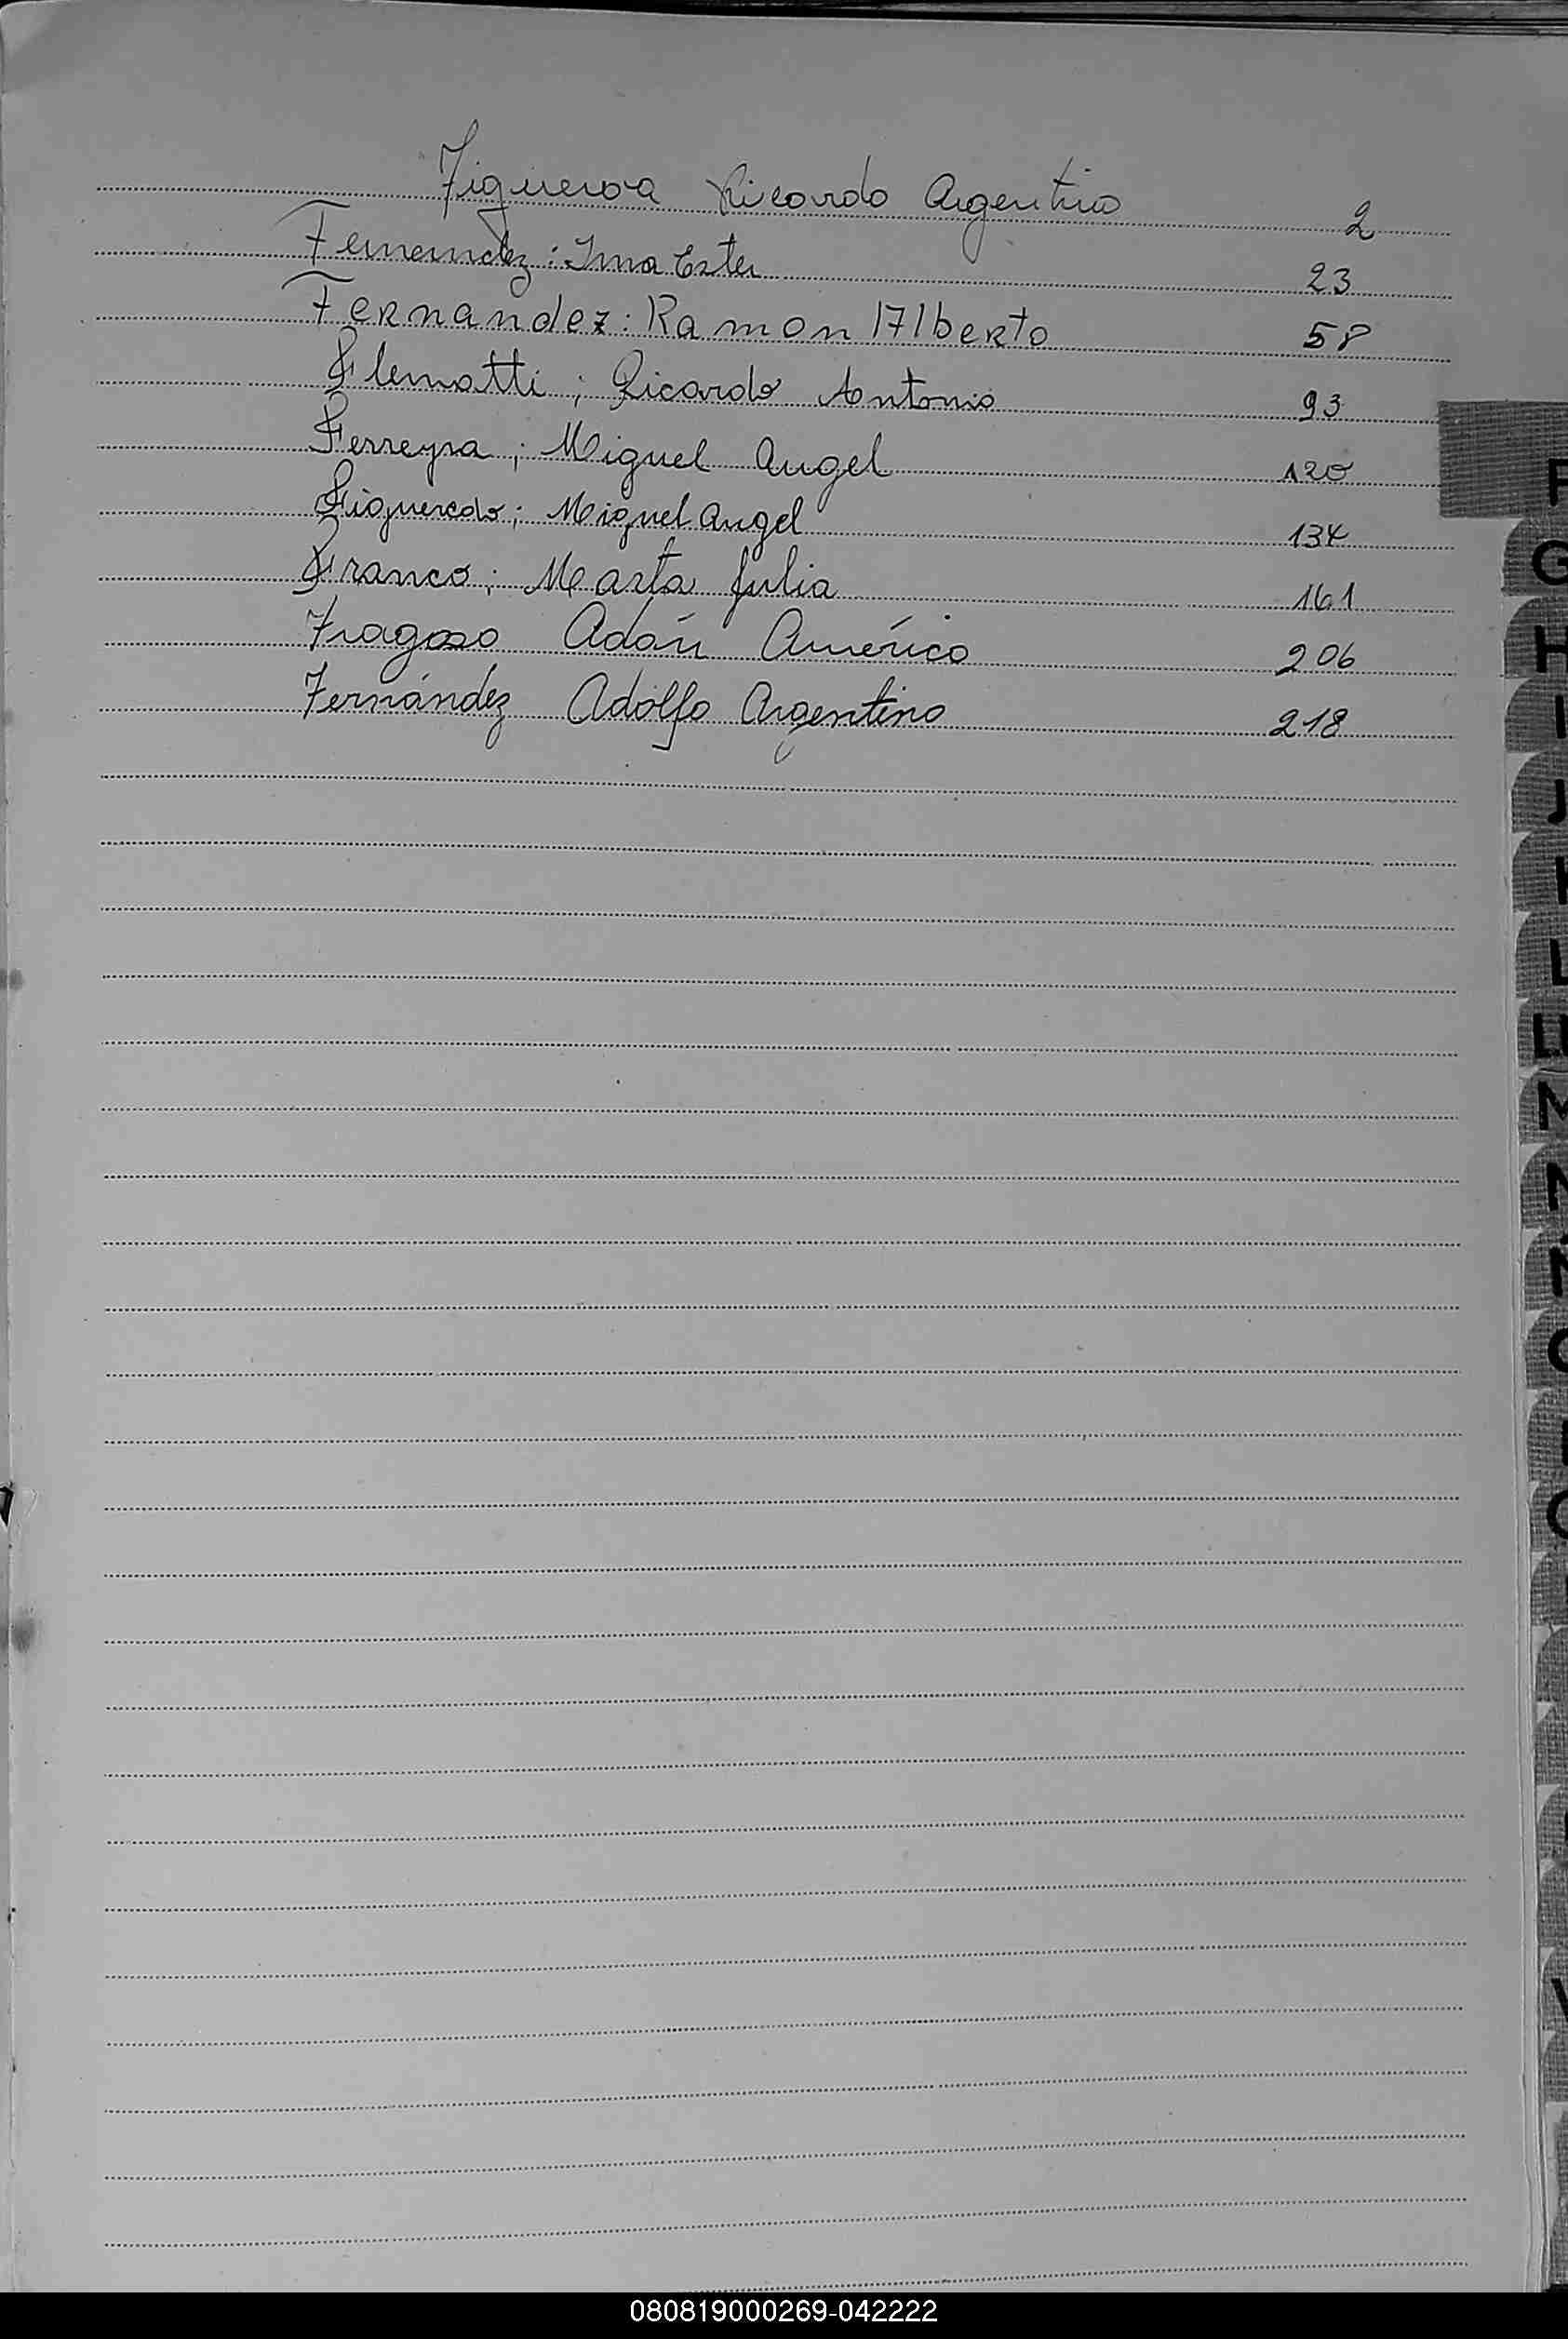 Figueroa Ricardo Argentino 2
Fernandez: Irma Ester 23
Fernandez: Ramon Alberto 58
Flematti; Ricardo Antonio 93
Ferreyra; Miguel Angel 120
Figueredo; Miguel Angel 134
Franco; Marta Julia 161
Fragoso Adán Américo 206
Fernández Adolfo Argentino 218
F
G
H
I
J
K
L
LL
M
N
Ñ
O
080819000269-042222